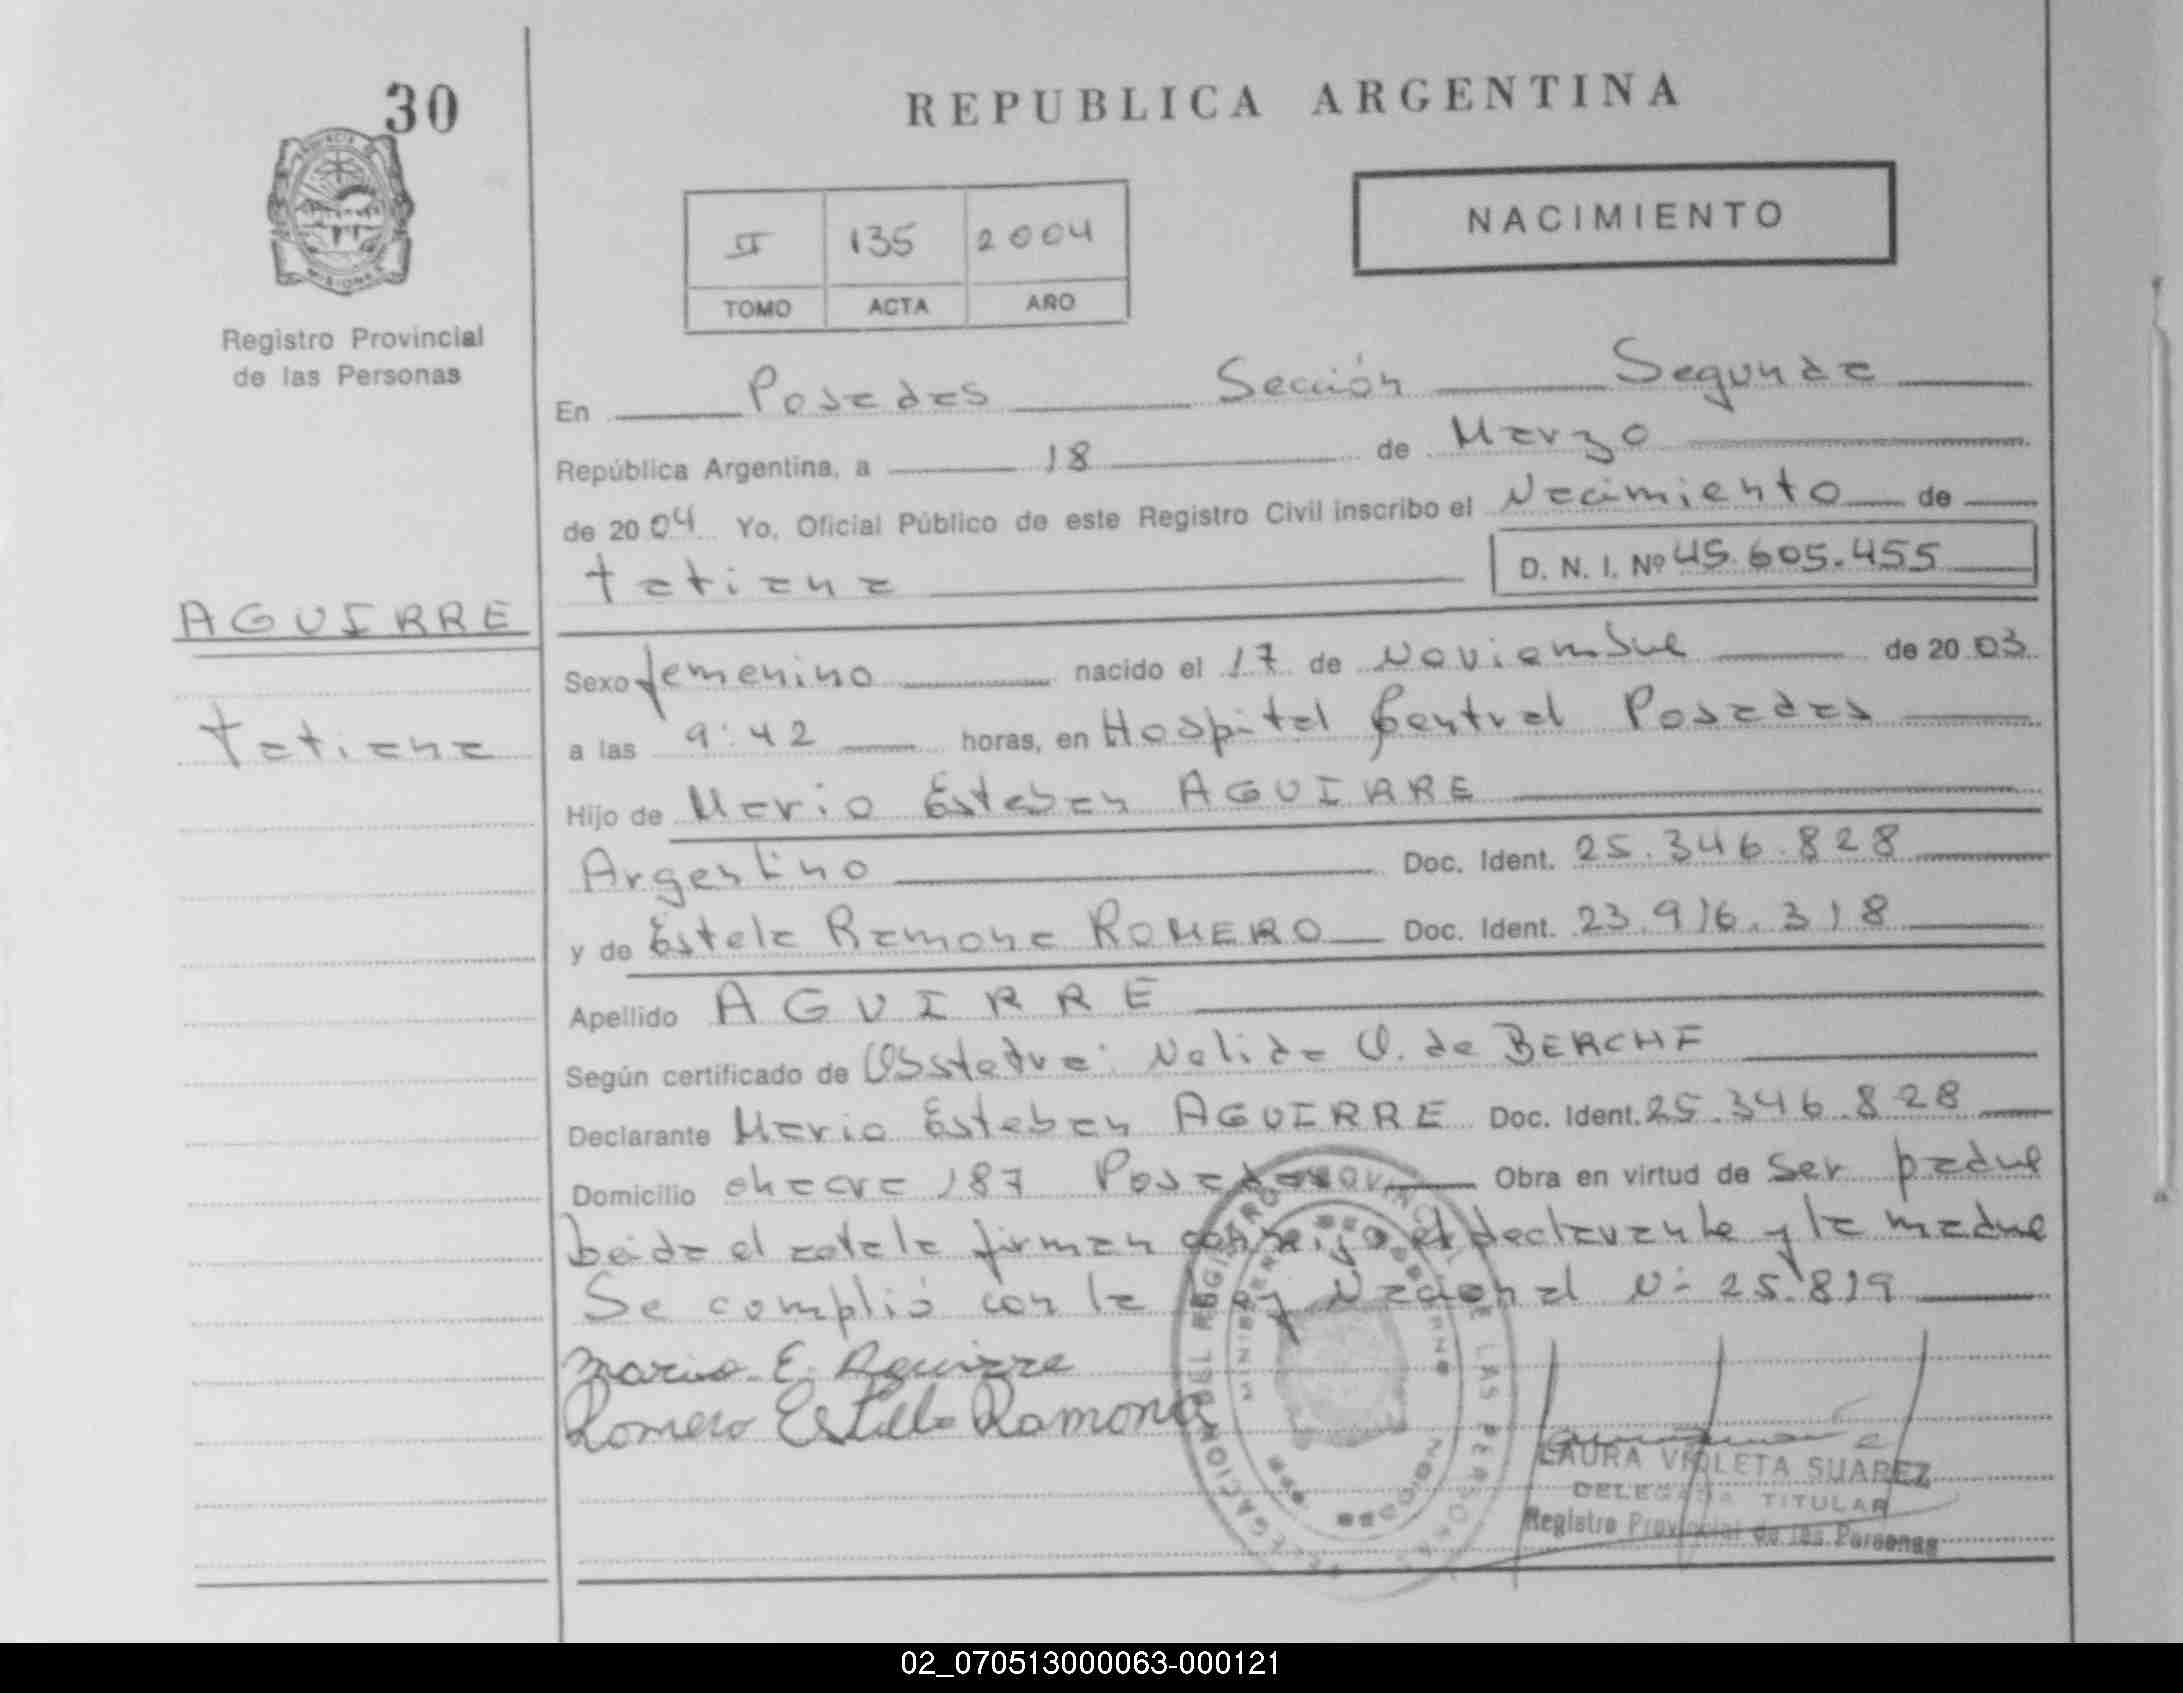 30
REPUBLICA ARGENTINA
NACIMIENTO
II 135 2004
TOMO ACTA AÑO
Registro Provincial
de las Personas
En Posadas Sección Segunda
República Argentina, a 18 de Marzo
de 2004 Yo, Oficial Público de este Registro Civil inscribo el Nacimiento de
tatiana D. N. I. Nº 45.605.455
AGUIRRE
tatiana
Sexo femenino nacido el 17 de Noviembre de 2003
a las 9:42 horas, en Hospital Central Posadas
Hijo de Mario Esteban AGUIRRE
Argentino Doc. Ident. 25.346.828
y de Estela Ramona ROMERO Doc. Ident. 23.916.318
Apellido AGUIRRE
Según certificado de Obstetra: Nelida O. de BERCHE
Declarante Mario Esteban AGUIRRE Doc. Ident. 25.346.828
Domicilio 187 Posadas Obra en virtud de ser padre
Leida el acta la firman conmigo el declarante y la madre
Se complió con la Ley Nacional Nº 25.819
Mario E. Aguirre
Romero Estella Ramona
DELEGACION DEL REGISTRO PROVINCIAL DE LAS PERSONAS
MINISTERIO DE GOBIERNO
LAURA VIOLETA SUAREZ
DELEGADA TITULAR
Registro Provincial de las Personas
02_070513000063-000121